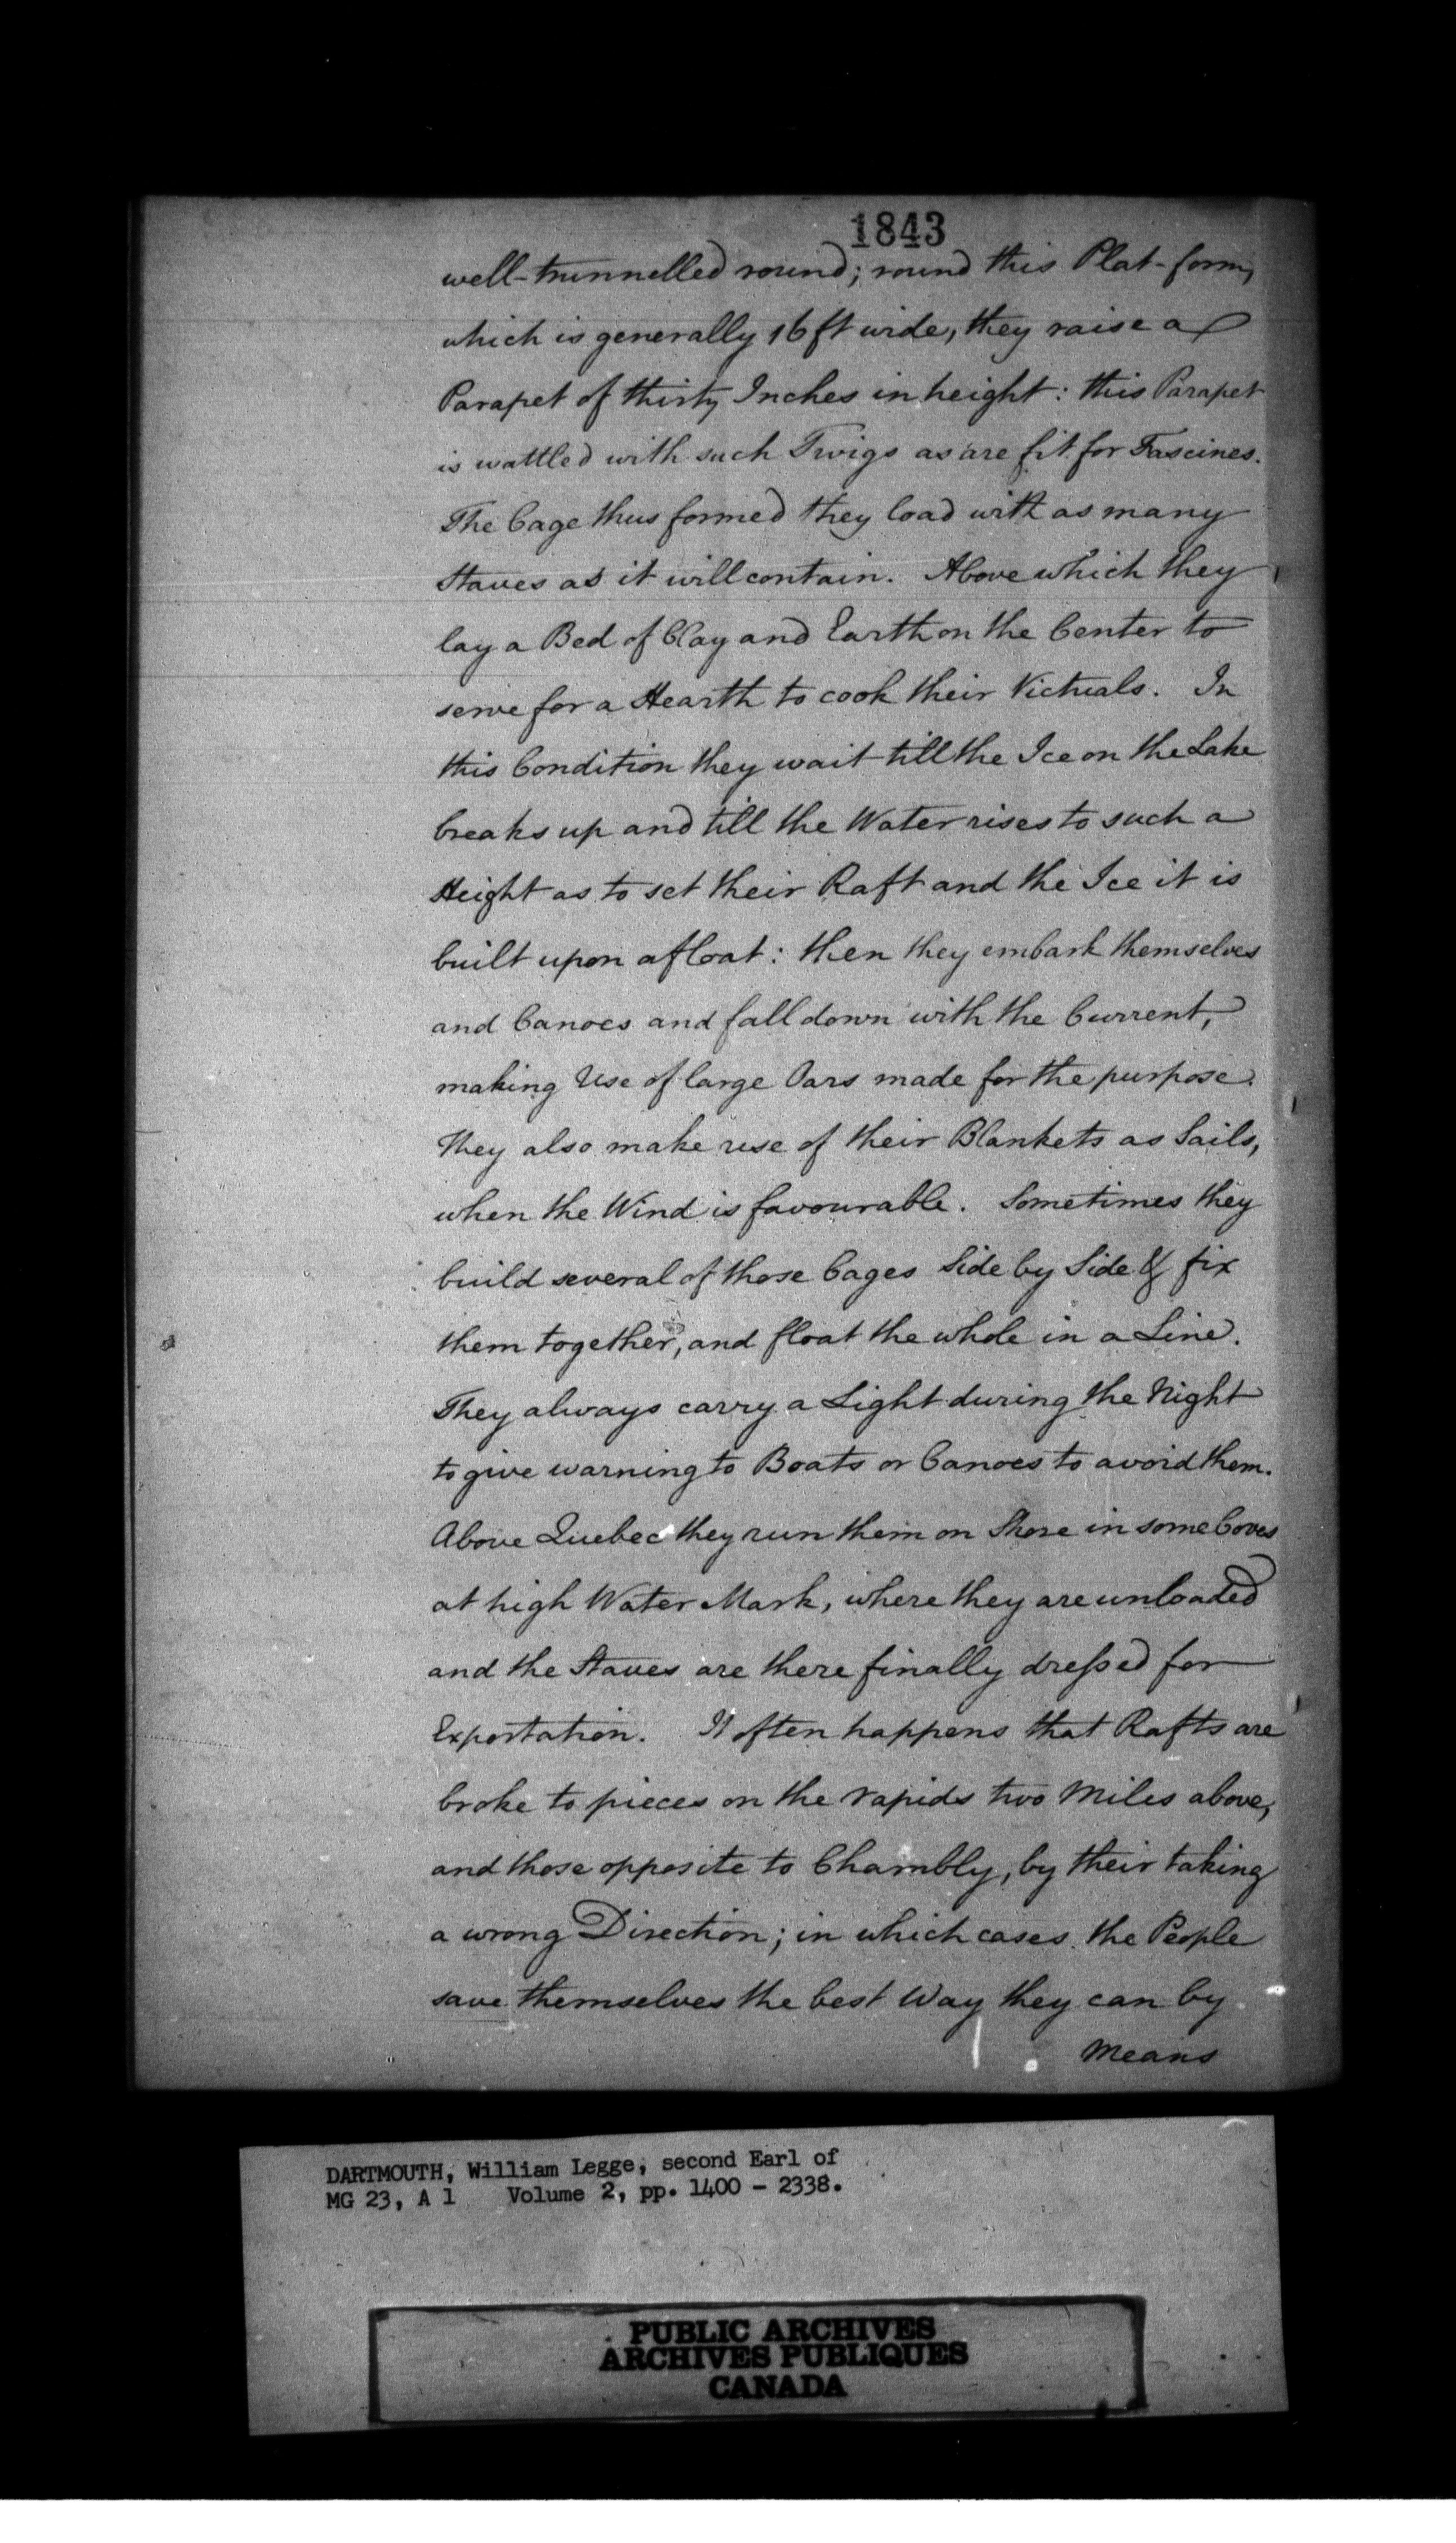 1843
well-trunnelled round; round this Plat-form,
which is generally 16 ft wide, they raise a
Parapet of thirty Inches in height: this Parapet
is wattled with such Twigs as are fit for Fascines.
The Cage thus formed they load with as many
Staves as it will contain. Above which they
lay a Bed of Clay and Earth on the Center to
serve for a Hearth to cook their Victuals. In
this Condition they wait till the Ice on the Lake
breaks up and till the Water rises to such a
Height as to set their Raft and the Ice it is
built upon afloat: then they embark themselves
and Canoes and fall down with the Current,
making Use of large Oars made for the purpose.
They also make use of their Blankets as Sails,
when the Wind is favourable. Sometimes they
build several of those Cages Side by Side & fix
them together, and float the whole in a Line.
They always carry a Light during the Night
to give warning to Boats or Canoes to avoid them.
Above Quebec they run them on Shore in some Coves
at high Water Mark, where they are unloaded
and the Staves are there finally dreſsed for
Exportation. It often happens that Rafts are
broke to pieces on the rapids two Miles above,
and those opposite to Chambly, by their taking
a wrong Direction; in which cases the People
save themselves the best Way they can by
Means
DARTMOUTH, William Legge, second Earl of
MG 23, A 1 Volume 2, pp. 1400 - 2338.
PUBLIC ARCHIVES
ARCHIVES PUBLIQUES
CANADA